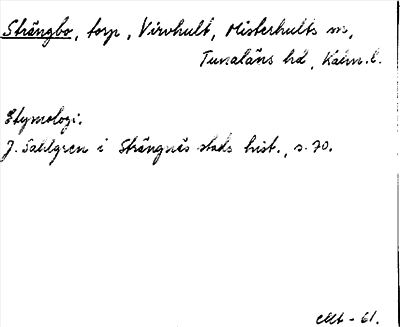 Strängbo, torp, Virvhult, Misterhults sn,
Tunaläns hd, Kalm. l.
Etymologi.
J. Sahlgren i Strängnäs stads hist., s. 70.
- 61.